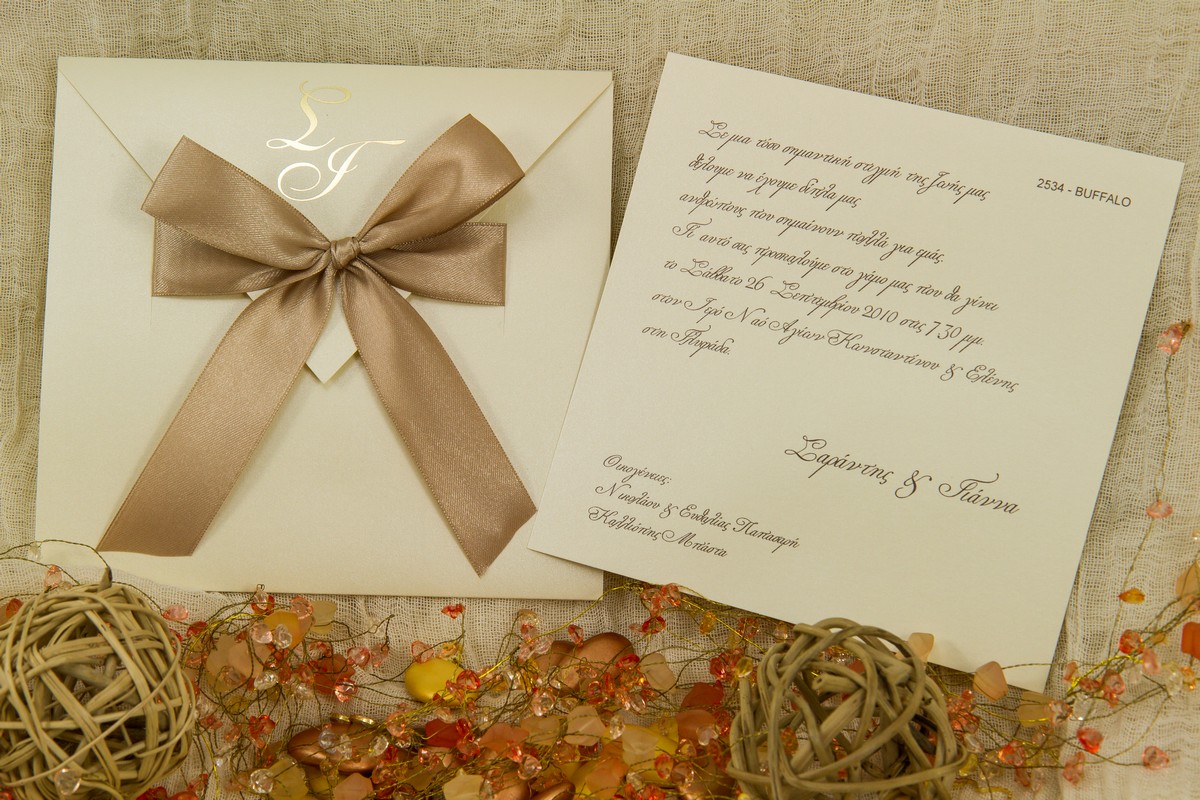 Σ
Γ
Σε μια τόσο σημαντική στιγμή της ζωής μας
θέλουμε να έχουμε δίπλα μας
ανθρώπους που σημαίνουν πολλά για εμάς.
Γι αυτό σας προσκαλούμε στο γάμο μας που θα γίνει
το Σάββατο 26 Σεπτεμβρίου 2010 στις 7.30 μμ.
στον Ιερό Ναό Αγίων Κωνσταντίνου & Ελένης
στη Γλυφάδα.
2534 - BUFFALO
Σαράντης & Γιάννα
Οικογένειες:
Νικολάου & Ευθαλίας
Καλλιόπης Μπάστα